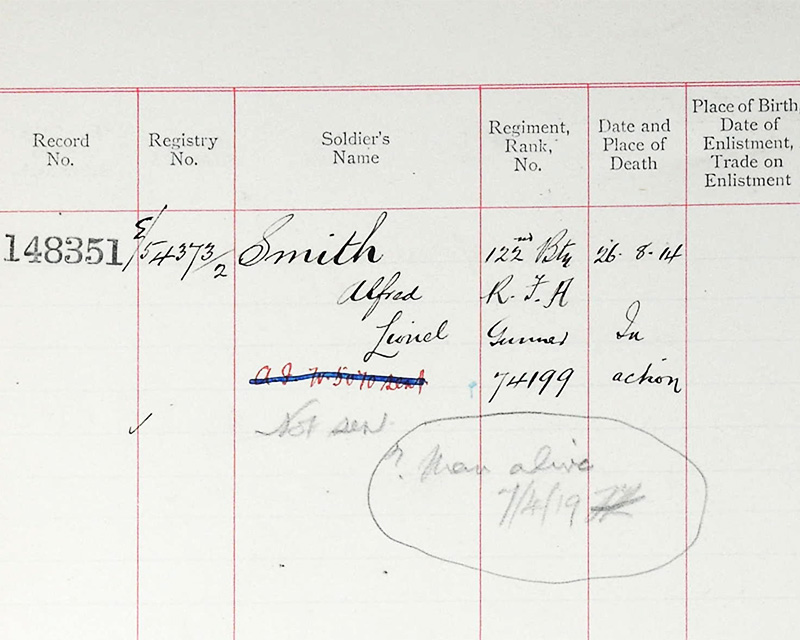 Record No.
Registry No.
Soldier's Name
Regiment, Rank, No.
Date and Place of Death
Place of Birth, Date of Enlistment, Trade on Enlistment
148351
E/54373/2
Smith
Alfred
Lionel
122nd Bty
R. F. A
Gunner
74199
26. 8. 14
In
action
Not sent
? Man alive
7/4/19